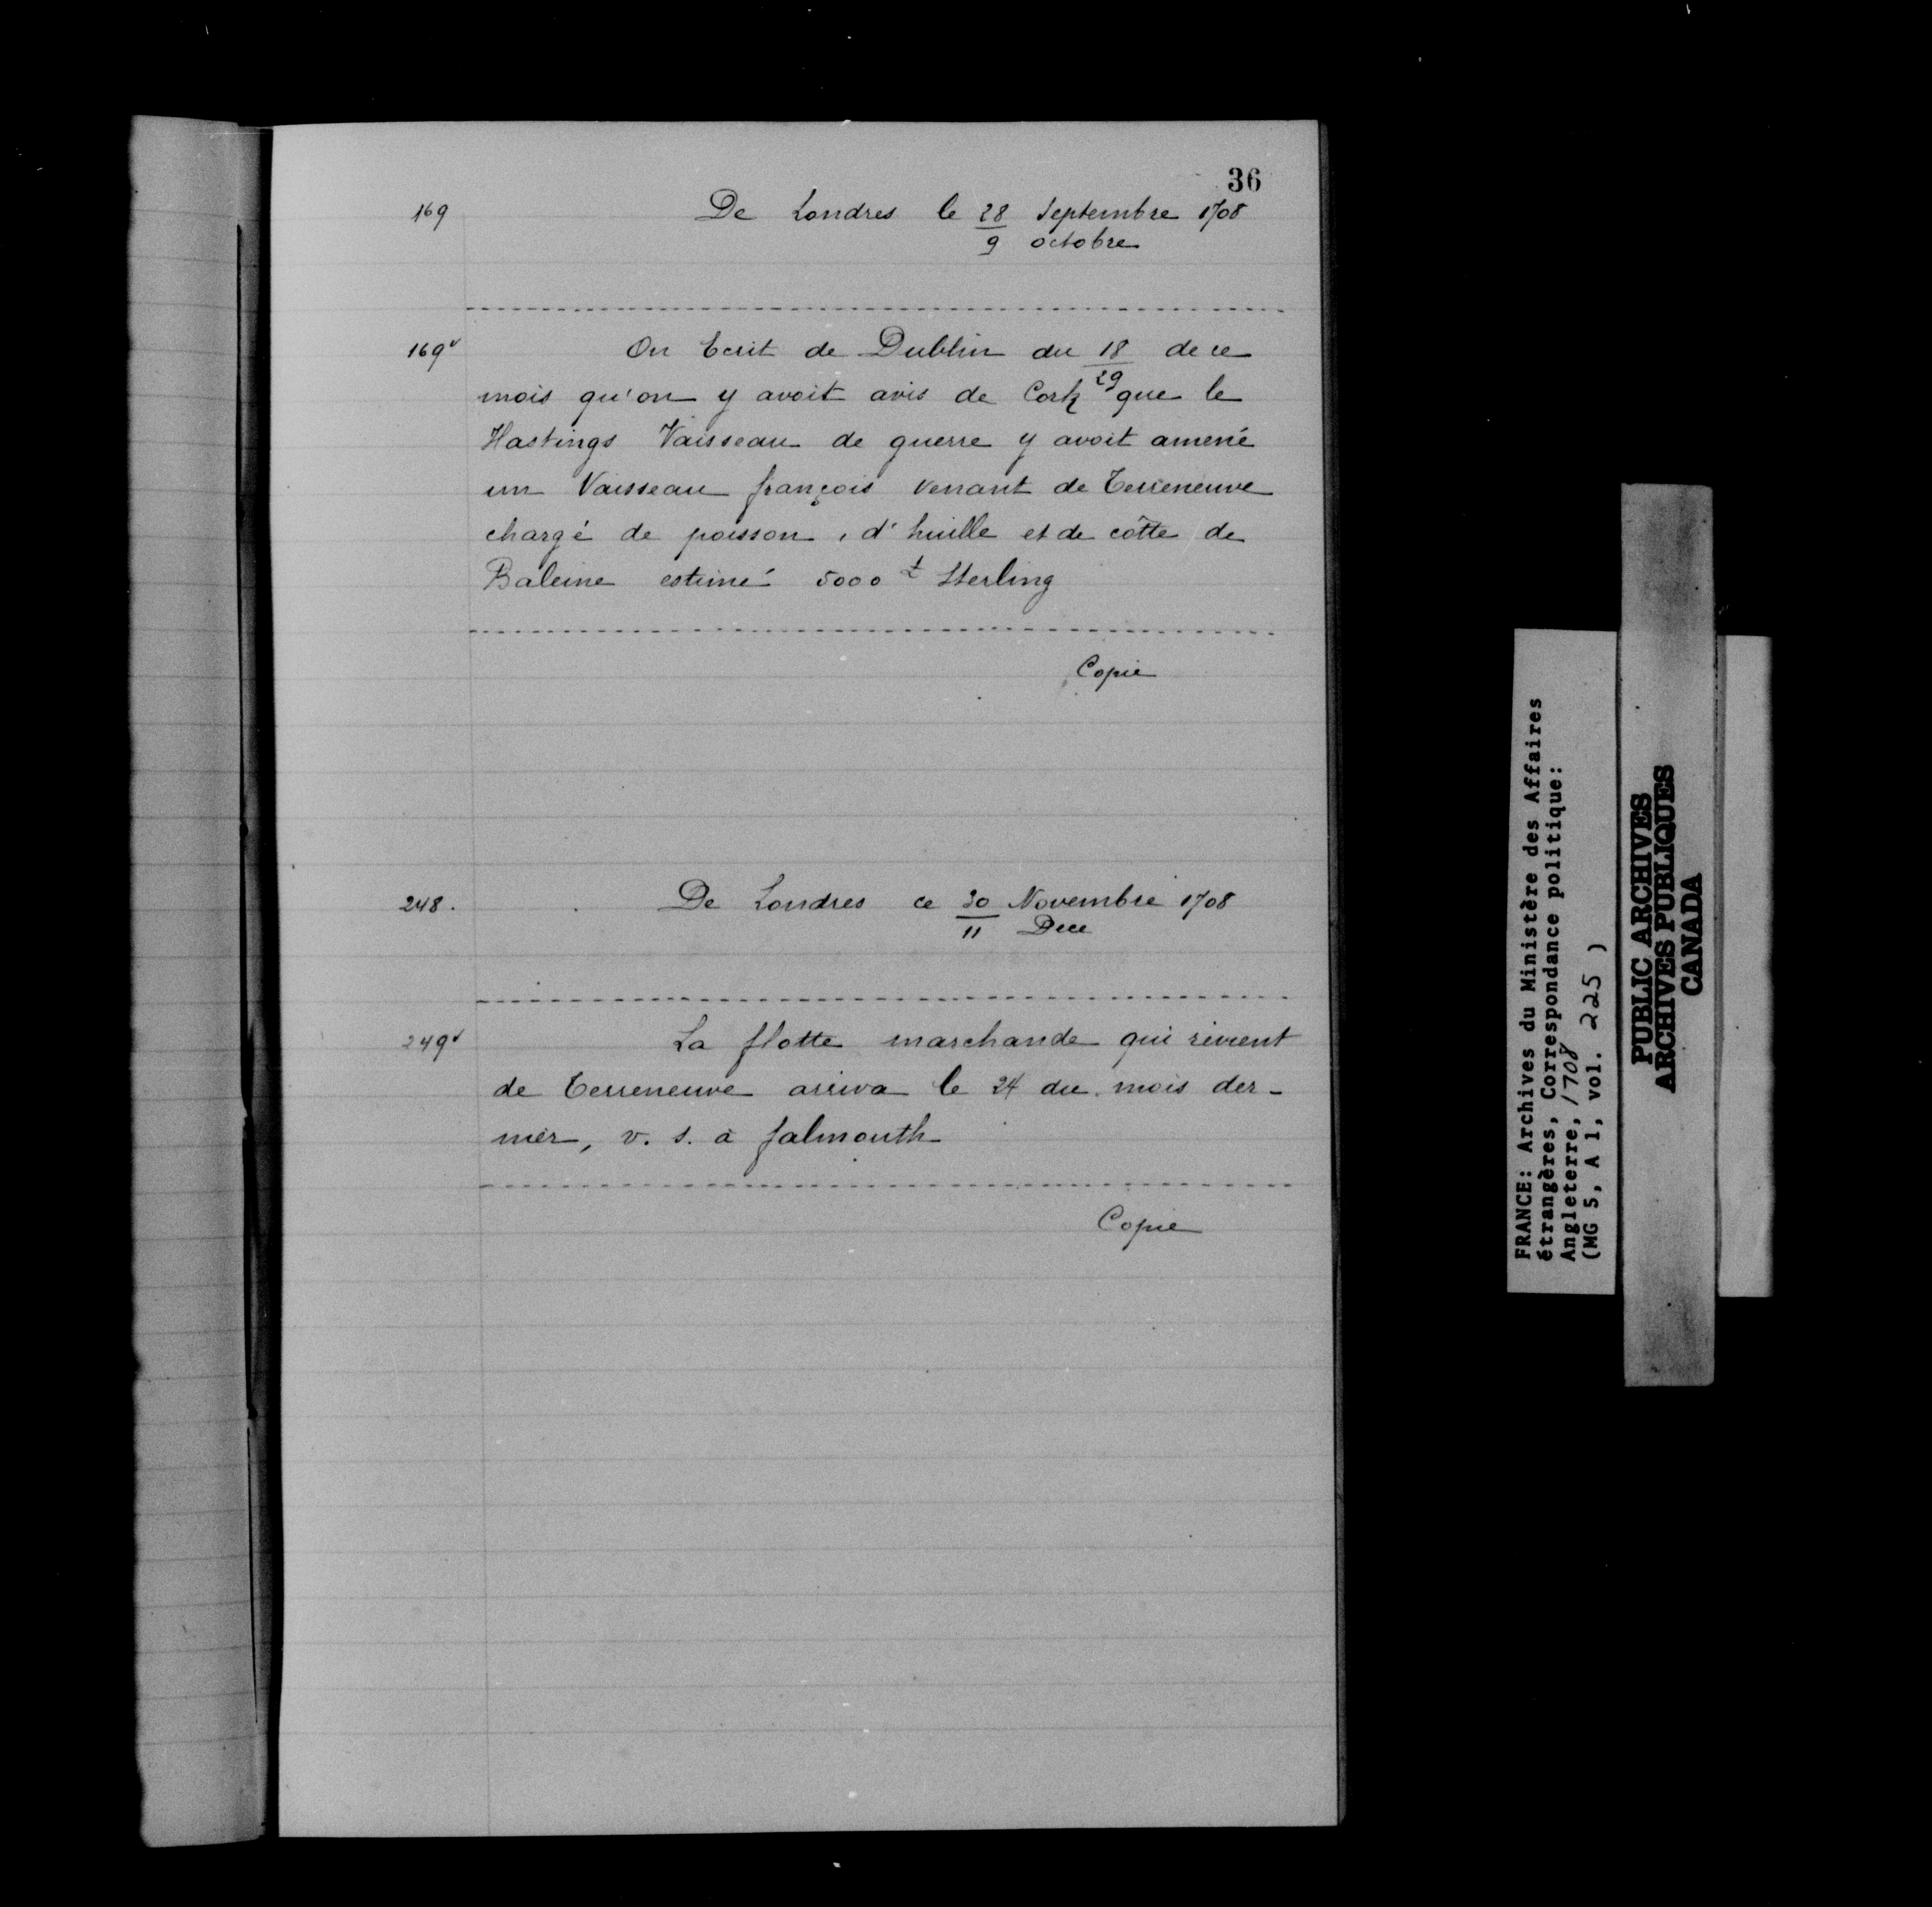 36
169 De Londres le 28 Septembre 1708
9 octobre
169v On Ecrit de Dublin du 18 de ce
29
mois qu'on y avoit avis de Cork que le
Hastings Vaisseau de guerre y avoit amené
un Vaisseau françois venant de Terreneuve
chargé de poisson, d'huille et de côtte de
Baleine estimé 5000 £ Sterling
Copie
248. De Londres ce 30 Novembre 1708
11 Dece
249v La flotte marchande qui revient
de Terreneuve arriva le 24 du mois der-
nier, v. s. à falmouth
Copie
FRANCE: Archives du Ministère des Affaires
étrangères, Correspondance politique:
Angleterre, 1708
(MG 5, A 1, vol. 225 )
PUBLIC ARCHIVES
ARCHIVES PUBLIQUES
CANADA